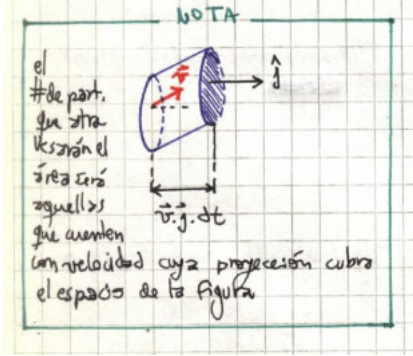 NOTA
el
# de part.
que atra
vesarán el
área será
aquellas
que cuenten
con velocidad cuya proyección cubra
el espacio de la figura
v⃗
ĵ
v⃗.ĵ.dt